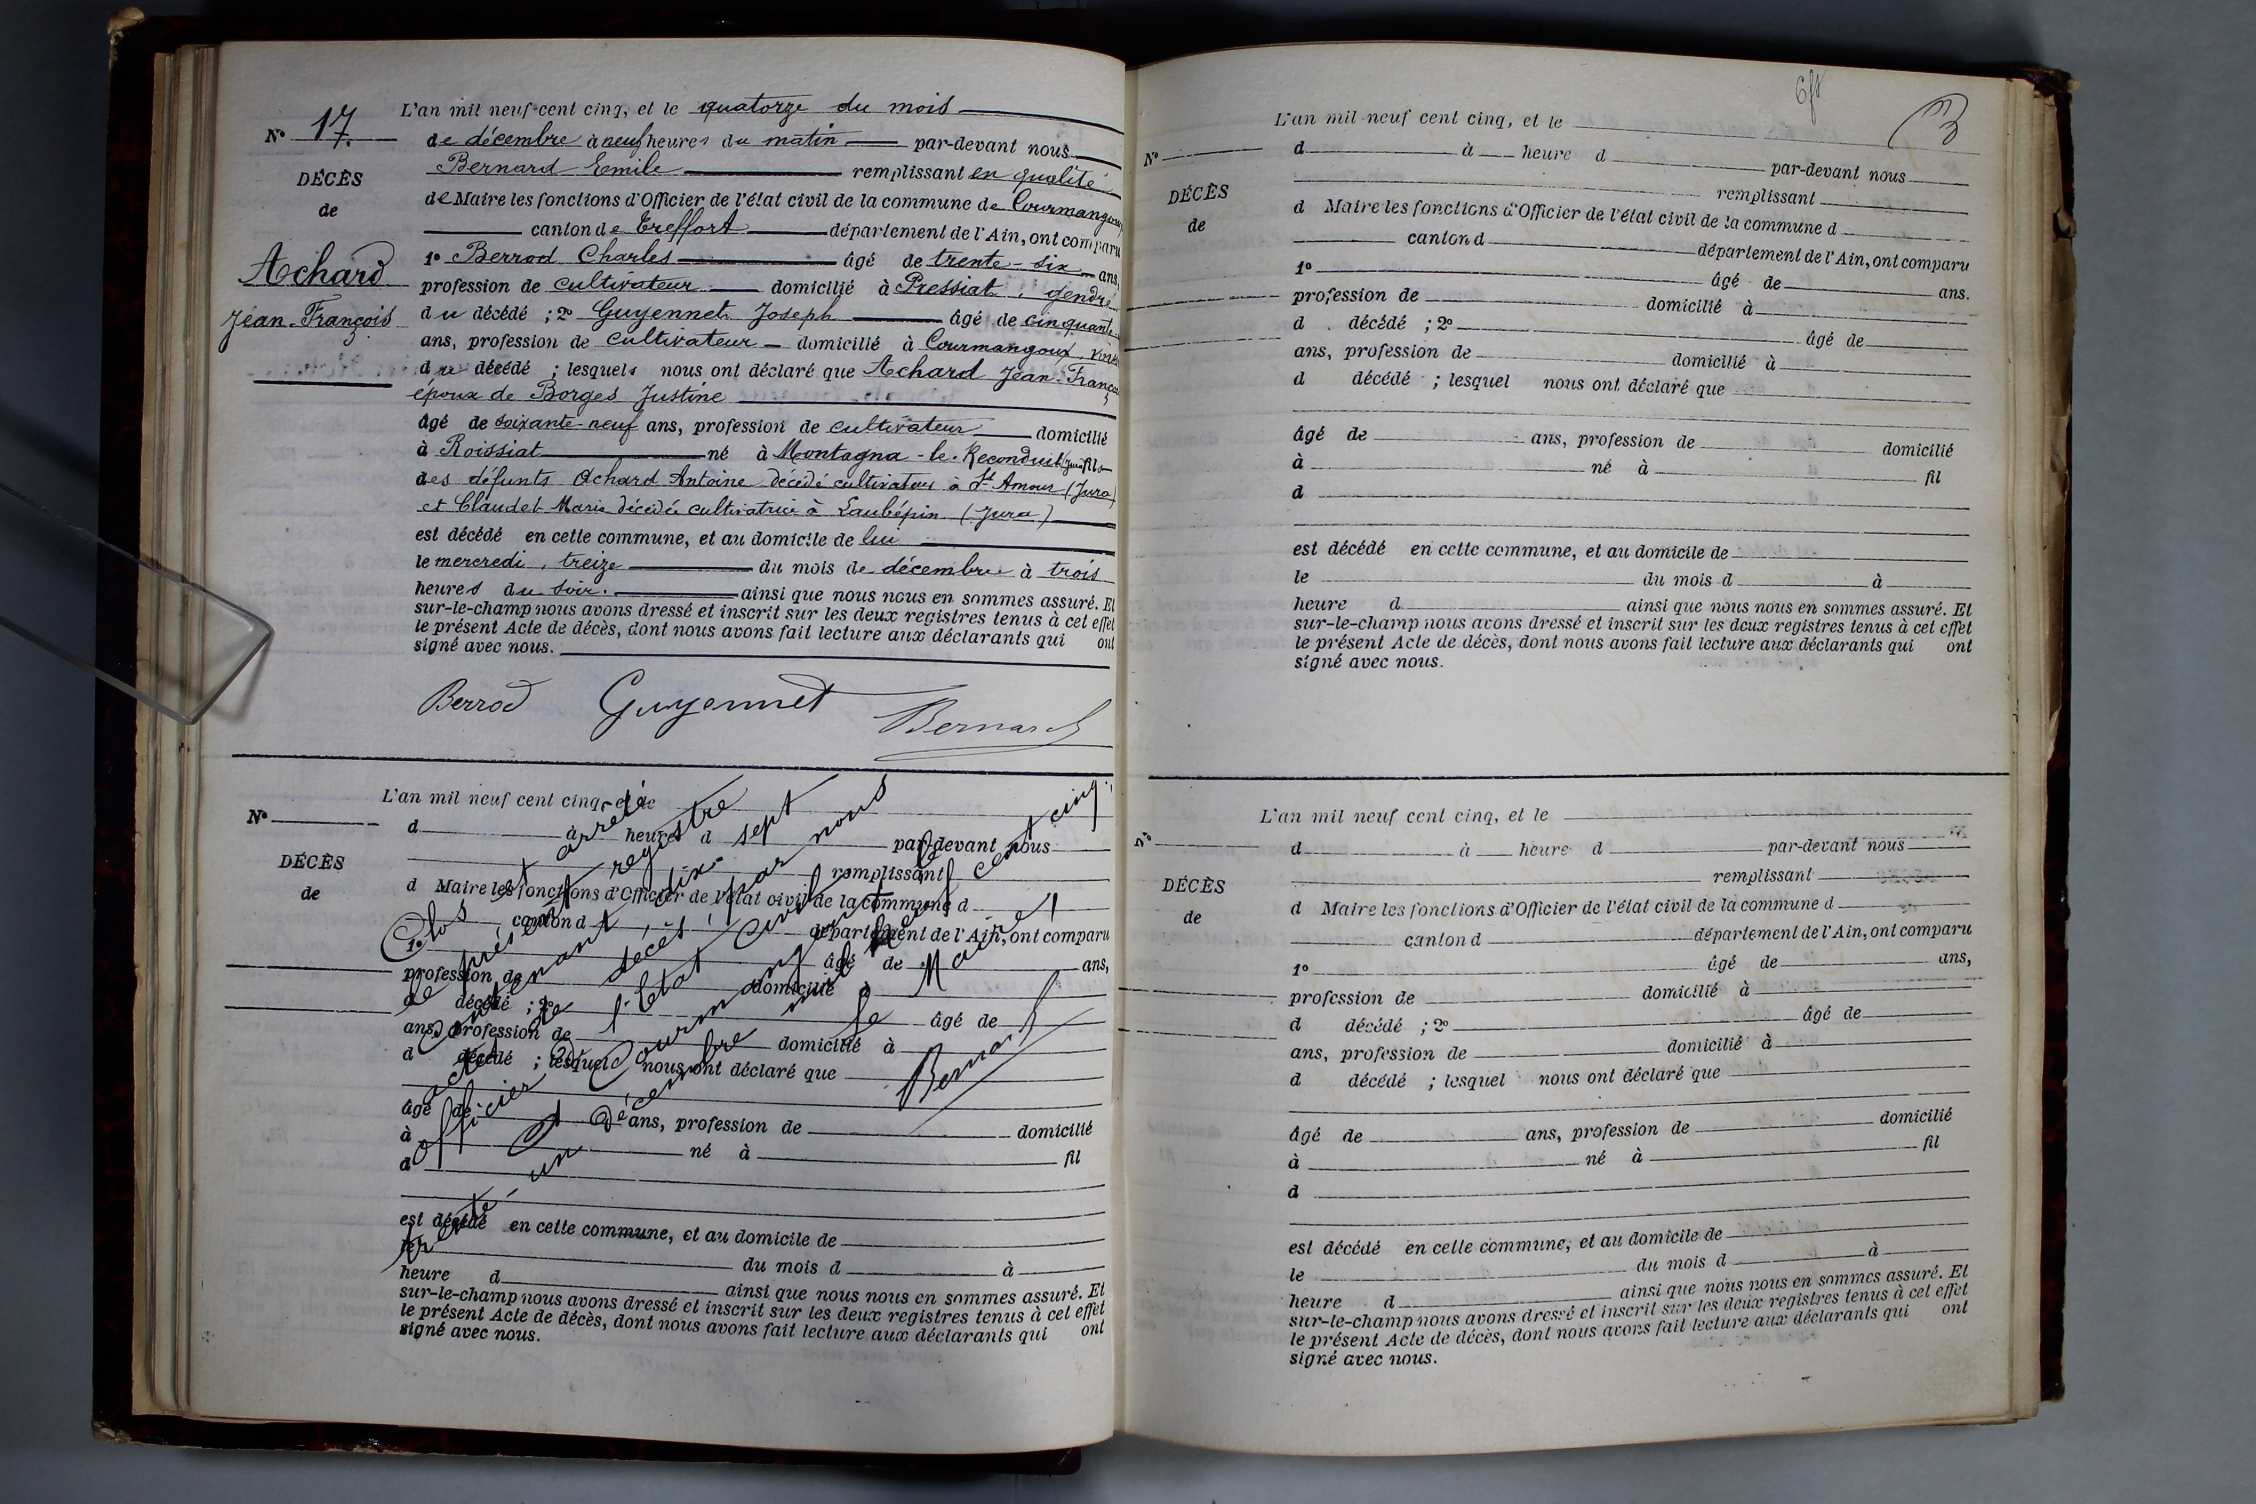 N° 17.
DÉCÈS
de
Achard
Jean-François
L'an mil neuf cent cinq, et le quatorze du mois
de décembre à neuf heures du matin par-devant nous
Bernard Emile remplissant en qualité
de Maire les fonctions d'Officier de l'état civil de la commune de Courmangoux
canton de Treffort département de l'Ain, ont comparu
1° Berrod Charles âgé de trente-six ans,
profession de cultivateur domicilié à Pressiat, gendre
du décédé ; 2° Guyennet Joseph âgé de cinquante
ans, profession de cultivateur domicilié à Courmangoux, voisin
du décédé ; lesquels nous ont déclaré que Achard Jean-François
époux de Borges Justine
âgé de soixante-neuf ans, profession de cultivateur domicilié
à Roissiat né à Montagna-le-Reconduit (Jura) fils
des défunts Achard Antoine décédé cultivateur à St Amour (Jura)
et Claudet Marie décédée cultivatrice à Laubépin (Jura)
est décédé en cette commune, et au domicile de lui
le mercredi, treize du mois de décembre à trois
heures du soir. ainsi que nous nous en sommes assuré. Et
sur-le-champ nous avons dressé et inscrit sur les deux registres tenus à cet effet
le présent Acte de décès, dont nous avons fait lecture aux déclarants qui ont
signé avec nous.
Berrod Guyennet Bernard
N°
DÉCÈS
de
L'an mil neuf cent cinq, et le
d à heure d par-devant nous
remplissant
d Maire les fonctions d'Officier de l'état civil de la commune d
canton d département de l'Ain, ont comparu
1° âgé de ans,
profession de domicilié à
d décédé ; 2° âgé de
ans, profession de domicilié à
d décédé ; lesquel nous ont déclaré que
âgé de ans, profession de domicilié
à né à fil
d
est décédé en cette commune, et au domicile de
le du mois d à
heure d ainsi que nous nous en sommes assuré. Et
sur-le-champ nous avons dressé et inscrit sur les deux registres tenus à cet effet
le présent Acte de décès, dont nous avons fait lecture aux déclarants qui ont
signé avec nous.
Clos et arrêté
le présent registre
contenant, dix-sept
actes de décès, par nous
officier de l'Etat Civil de
Courmangoux le
trente-un Décembre mil neuf cent cinq.
Le Maire
Bernard
L'an mil neuf cent cinq, et le
N°
DÉCÈS
de
d à heure d par-devant nous
remplissant
d Maire les fonctions d'Officier de l'état civil de la commune d
canton d département de l'Ain, ont comparu
1° âgé de ans.
profession de domicilié à
d décédé ; 2° âgé de
ans, profession de domicilié à
d décédé ; lesquel nous ont déclaré que
âgé de ans, profession de domicilié
à né à fil
d
est décédé en cette commune, et au domicile de
le du mois d à
heure d ainsi que nous nous en sommes assuré. Et
sur-le-champ nous avons dressé et inscrit sur les deux registres tenus à cet effet
le présent Acte de décès, dont nous avons fait lecture aux déclarants qui ont
signé avec nous.
L'an mil neuf cent cinq, et le
N°
DÉCÈS
de
d à heure d par-devant nous
remplissant
d Maire les fonctions d'Officier de l'état civil de la commune d
canton d département de l'Ain, ont comparu
1° âgé de ans,
profession de domicilié à
d décédé ; 2° âgé de
ans, profession de domicilié à
d décédé ; lesquel nous ont déclaré que
âgé de ans, profession de domicilié
à né à fil
d
est décédé en cette commune, et au domicile de
le du mois d à
heure d ainsi que nous nous en sommes assuré. Et
sur-le-champ nous avons dressé et inscrit sur les deux registres tenus à cet effet
le présent Acte de décès, dont nous avons fait lecture aux déclarants qui ont
signé avec nous.